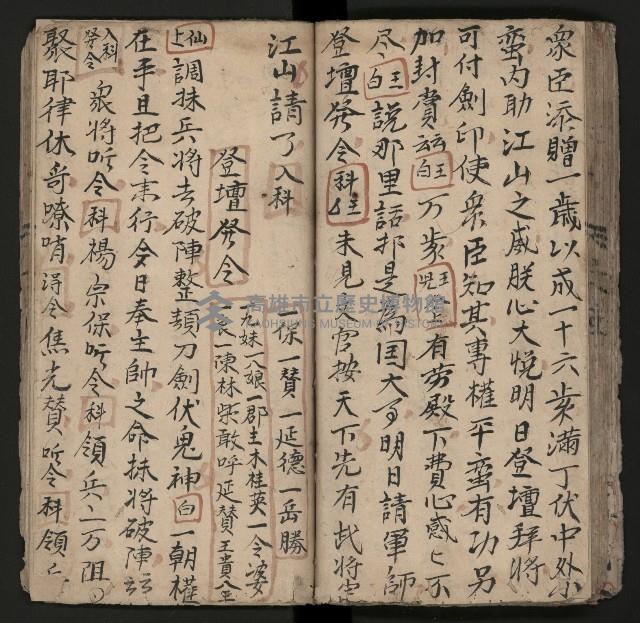 衆臣添贈一歲以成一十六歲滿丁伏中外
蛮内助江山之威朕心大悦明日登壇拜將
可付劍印使衆臣知其專權平蛮有功另
加封賞 王白 万歲 有劳殿下費心感〻不
尽 王白 說那里話都是為国大事明日請軍師
登壇發令 科 未見文官按天下先有武將
江山請了 入科
登壇發令
一保一贊一延德一岳勝
九妹一八娘一郡主木桂英一令婆
一陳林柴敢呼延贊王貴
仙上 調抹兵將去破陣整頓刀劍伏鬼神 白 一朝權
在手且把令來行今日奉主帥之命抹將破陣
入科 發令 衆將听令 科 楊宗保听令 科 領兵一万阻
聚耶律休哥嘹哨 得令 焦光贊听令 科 領
高雄市立歷史博物館
KAOHSIUNG MUSEUM OF HISTORY